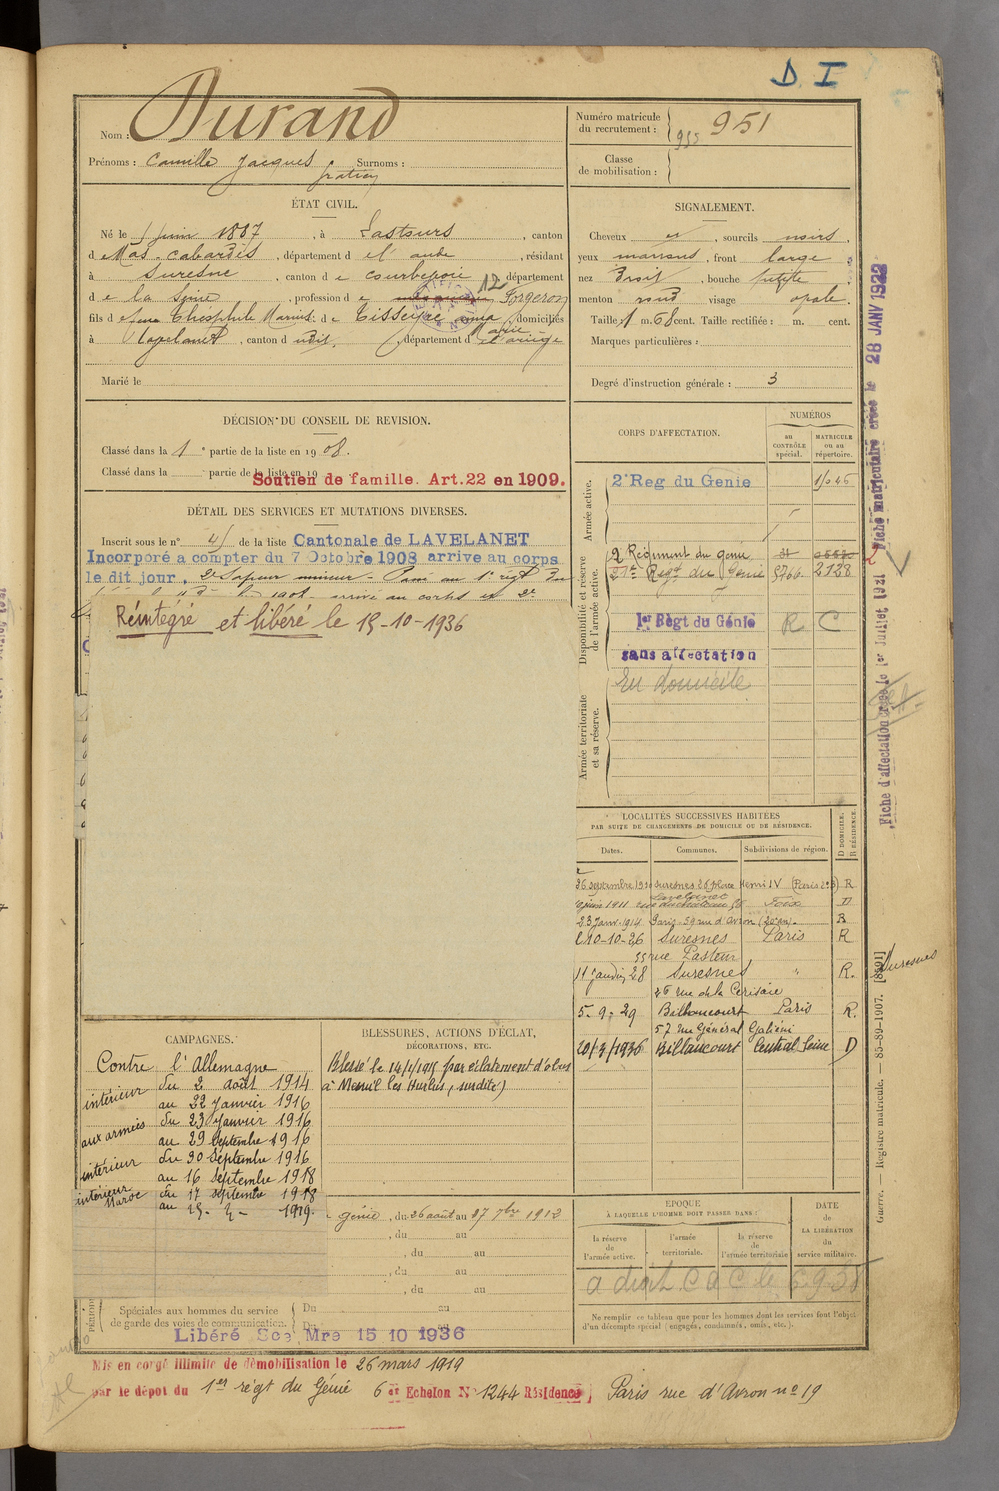 D. I
Nom : Durand
Prénoms : Camille Jacques Surnoms :
Numéro matricule du recrutement : 951
Classe de mobilisation :
ÉTAT CIVIL.
Né le juin 1887, à Lastours, canton
d e Mas-Cabardès, département d e l'aude, résidant
à Suresne, canton d e Courbevoie, département
d e la Seine, profession d e Forgeron 12
fils d e Théophile Marius et d e Tisseyre Marie domiciliés
à Lavelanet, canton d udit, département d e l'ariège
Marié le
SIGNALEMENT.
Cheveux , sourcils noirs,
yeux marrons, front large
nez Droit, bouche petite
menton rond visage ovale.
Taille : 1 m. 68 cent. Taille rectifiée : m. cent.
Marques particulières :
Degré d'instruction générale : 3
DÉCISION DU CONSEIL DE REVISION.
Classé dans la 1e partie de la liste en 1908.
Classé dans la partie de la liste en 19
Soutien de famille. Art. 22 en 1909.
DÉTAIL DES SERVICES ET MUTATIONS DIVERSES.
Inscrit sous le n° de la liste Cantonale de LAVELANET
Incorporé a compter du 7 Octobre 1908 arrive au corps
le dit jour, 2e Sapeur mineur
Réintégré et libéré le 15-10-1936
CORPS D'AFFECTATION.
NUMÉROS
au CONTRÔLE spécial.
MATRICULE ou au répertoire.
Armée active.
2e Reg du Genie
Disponibilité et réserve de l'armée active.
2 Régiment du genie
Regt du Génie 5766 2128
1er Règt du Génie R C
sans affectation
Armée territoriale et sa réserve.
LOCALITÉS SUCCESSIVES HABITÉES
PAR SUITE DE CHANGEMENTS DE DOMICILE OU DE RÉSIDENCE.
Dates. Communes. Subdivisions de région. D DOMICILE. R RÉSIDENCE.
26 septembre 1910 Suresnes 26 place Henri IV R
juin 1911 Lavelanet Foix D
23 Janv. 1914 Paris 59 rue d'Avron (20e arr.) R
10-10-26 Suresnes Paris R
55 rue Pasteur
28 Suresnes " R.
26 rue de la Cerisaie
5-9-29 Billancourt Paris R.
57 rue Général Galiéni
20/3/1936 Billancourt Central Seine D
CAMPAGNES.
Contre l'Allemagne
intérieur du 2 août 1914
au 22 Janvier 1916
aux armées du 23 Janvier 1916
au 29 Septembre 1916
intérieur du 30 Septembre 1916
au 16 Septembre 1918
intérieur Maroc du 17 septembre 1918
au 1919.
BLESSURES, ACTIONS D'ÉCLAT,
DÉCORATIONS, ETC.
Blessé le 14/1/1915 par éclatement d'obus
à Mesnil les Hurlus, surdité)
génie, du 26 août au 27 7bre 1912
, du au
, du au
, du au
, du au
Spéciales aux hommes du service
de garde des voies de communication.
Du au
Du au
Libéré Sce Mre 15 10 1936
EPOQUE
À LAQUELLE L'HOMME DOIT PASSER DANS :
la réserve de l'armée active.
l'armée territoriale.
la réserve de l'armée territoriale
DATE de LA LIBÉRATION du service militaire.
Ne remplir ce tableau que pour les hommes dont les services font l'objet
d'un décompte spécial (engagés, condamnés, omis, etc.).
Mis en congé illimité de démobilisation le 26 mars 1919
par le dépot du 1er régt du Génie 6 Echelon N° 1244 Résidence Paris rue d'Avron no 19
Fiche matriculaire créée le 28 JANV 1922
Fiche d'affectation créée le 1er Juillet 1921
Suresnes
Guerre. — Registre matricule. — 85-89-1907. [8591]